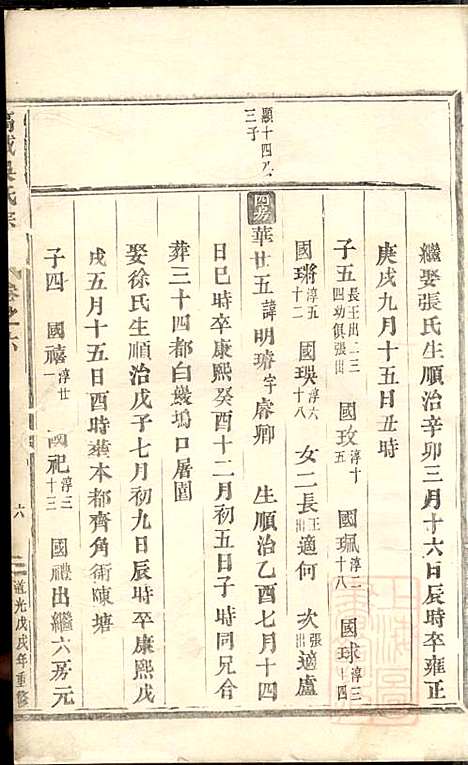 繼娶張氏生順治辛卯三月十六日辰時卒雍正
庚戌九月十五日丑時
子五 長王出二三四幼俱張出 國玫 淳十五 國珮 淳二十八 國球 淳三十四
國琳 淳五十二 國瑛 淳六十八 女二長 王出 適何 次 張出 適盧
顯十四 三子
四房 華廿五諱明璿字睿卿 生順治乙酉七月十四
日巳時卒康熙癸酉十二月初五日子時同兄合
葬三十四都白巖塢口屠園
娶徐氏生順治戊子七月初九日辰時卒康熙戊
戌五月十五日酉時葬本都齊角衕陳塘
子四 國禧 淳廿一 國祀 淳三十三 國禮出繼六房元
卷之六
六
道光戊戌年重修